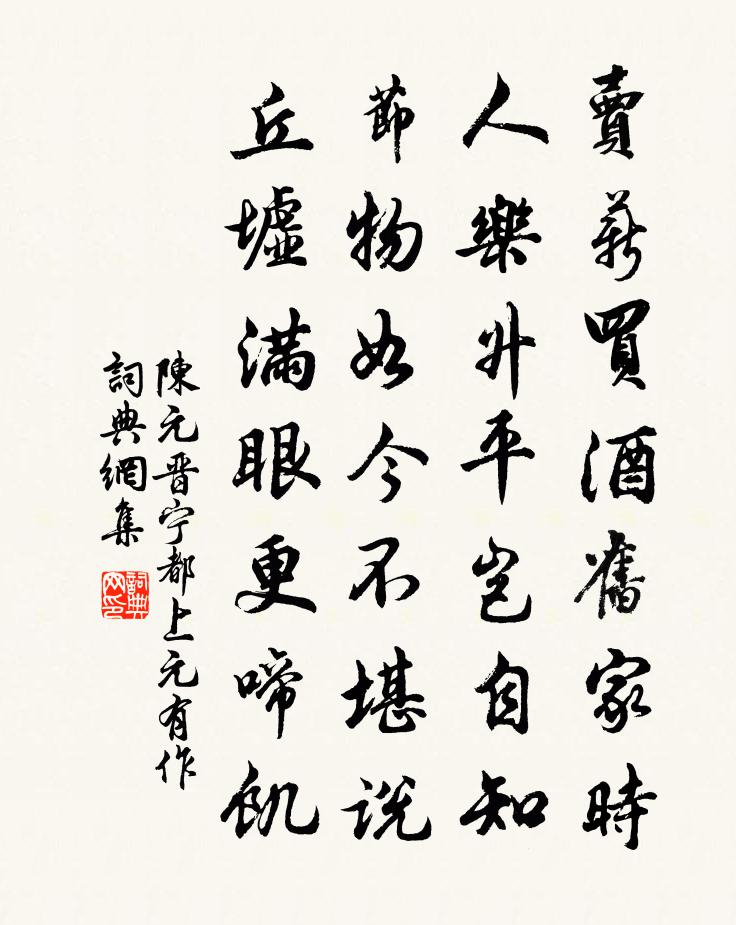 賣薪買酒舊家時
人樂升平豈自知
節物如今不堪說
丘墟滿眼更啼飢
陳元晋宁都上元有作
詞典網集
詞典网印